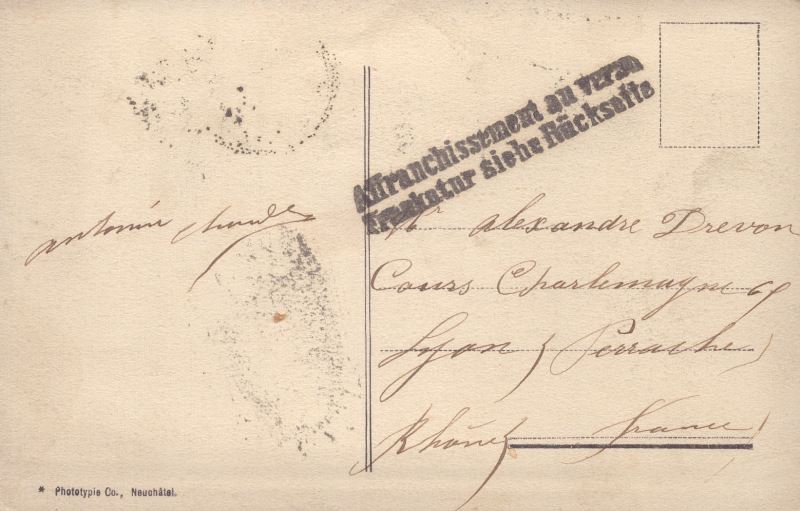 Affranchissement au verso
Frankatur siehe Rückseite
antonin
Mr alexandre Drevon
Cours Charlemagne 69
Lyon (Perrache)
Rhône France
* Phototypie Co., Neuchâtel.